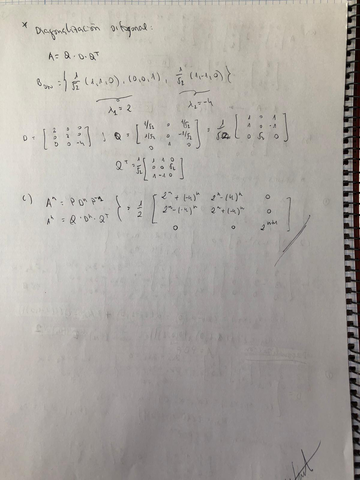 * Diagonalización Ortogonal:
A = Q · D · Qᵀ
B = { 1/√2 (1,1,0), (0,0,1), 1/√2 (1,-1,0) }
λ₁ = 2 λ₂ = -4
D = [ 2 0 0 ; 0 2 0 ; 0 0 -4 ] ; Q = [ 1/√2 0 1/√2 ; 1/√2 0 -1/√2 ; 0 1 0 ] = 1/√2 [ 1 0 1 ; 1 0 -1 ; 0 √2 0 ]
Qᵀ = 1/√2 [ 1 1 0 ; 0 0 √2 ; 1 -1 0 ]
c) Aⁿ = P Dⁿ P⁻¹
Aⁿ = Q · Dⁿ · Qᵀ } = 1/2 [ 2ⁿ + (-4)ⁿ 2ⁿ - (-4)ⁿ 0 ; 2ⁿ - (-4)ⁿ 2ⁿ + (-4)ⁿ 0 ; 0 0 2ⁿ⁺¹ ]